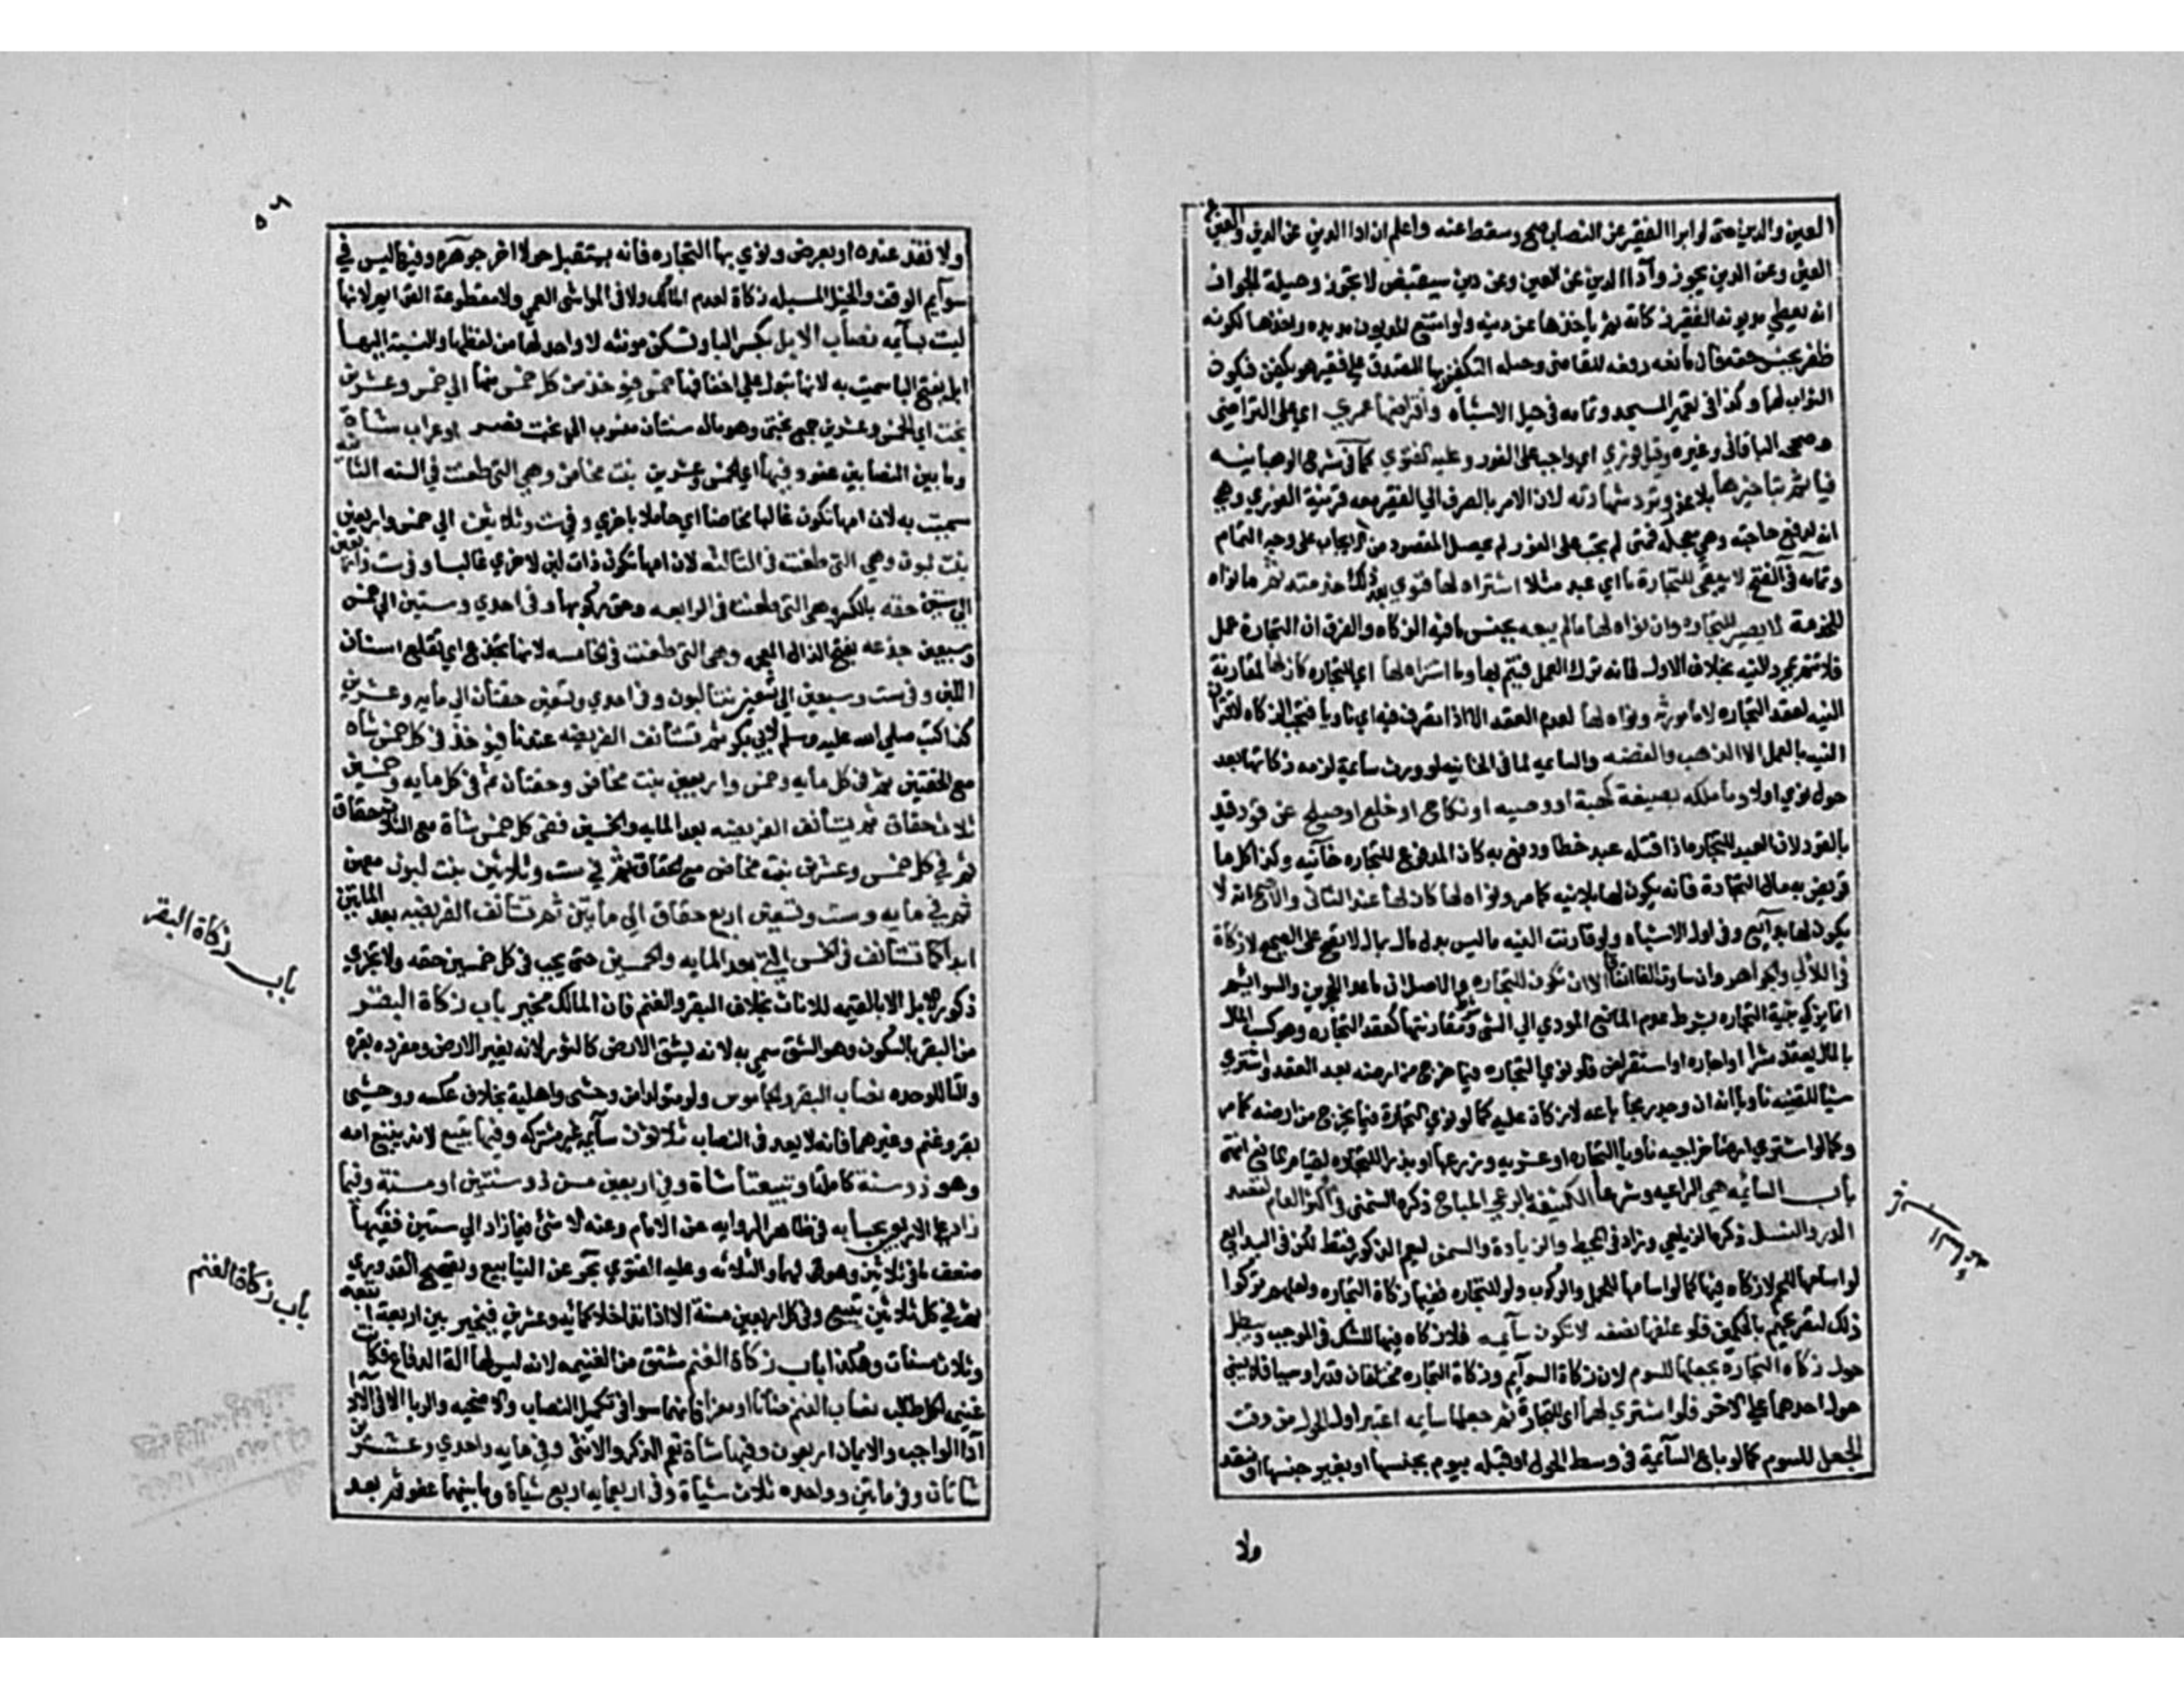 العين والدين حتى لو ابرا الفقير عن النصاب صح وسقط عنه واعلم ان ادا الدين عن الدين والعين عن
العين وعن الدين يجوز وأدا الدين عن العين وعن دين سيقبض لا يجوز وحيلة الجواز
ان يعطي مديونه الفقير زكاته ثم ياخذها عن دينه ولو امتنع المديون مد يده واخذها لكونه
ظفر بجنس حقه فان مانعه رفعه للقاضي وحيله التكفين بها التصدق على فقير هو يكفن فيكون
الثواب لهما وكذا في تعمير المسجد وتمامه في حيل الاشباه وافتراضها عمري اي على التراخي
وصححه الباقاني وغيره وقيل فوري اي واجب على الفور وعليه الفتوي كما في شرح الوهبانيه
فياثم بتاخيرها بلا عذر وترد شهادته لان الامر بالصرف الي الفقير معه قرينة الفوري وهي
انه لدفع حاجته وهي معجله فمتى لم تجب على الفور لم يحصل المقصود من الايجاب على وجه التمام
وتمامه في الفتح لا يبقى للتجارة ما اي عبد مثلا اشتراه لها فنوي بعد ذلك خدمته ثم ما نواه
للخدمة لا يصير للتجاره وان نواه لها ما لم يبعه بجنس ما فيه الزكاه والفرق ان التجارة عمل
فلا تتم بمجرد النيه بخلاف الاول فانه ترك العمل فيتم بها وما اشتراه لها اي للتجاره كان لها لمقارنة
النيه لعقد التجاره لا ما ورثه ونواه لها لعدم العقد الا اذا تصرف فيه اي ناويا فتجب الزكاه لاقتران
النيه بالعمل الا الذهب والفضه والسايمه لما في الخانيه لو ورث سايمة لزمه زكاتها بعد
حول نوي اولا وما ملكه بصنيعه كهبة او وصيه او نكاح او خلع او صلح عن قود قيد
بالقود لان العبد للتجاره اذا قتله عبد خطا ودفع به كان المدفوع للتجاره خانيه وكذا كل ما
قويض به مال التجارة فانه يكون لها بلا نيه كما مر ونواه لها كان لها عند الثاني والاصح انه لا
يكون لها بحر اي وفي اول الاشباه ولو قارنت النيه ما ليس بدل مال بمال لا تصح على الصحيح لا زكاة
في اللالي والجواهر وان ساوت الفا اتفاقا الا ان تكون للتجاره والاصل ان ما عدا الحجرين والسوايم
انما يزكي بنية التجاره بشرط عدم المانع المودي الي الثني وشرط مقارنتها لعقد التجاره وهو كسب المال
بالمال بعقد شرا او اجاره او استقراض فلو نوي التجاره فيما خرج من ارضه بعد العقد او اشتري
شيا للقنيه ناويا انه ان وجد ربحا باعه لا زكاة عليه كما لو نوي التجارة فيما يخرج من ارضه كما مر
وكما لو اشتري ارضا خراجيه ناويا التجاره او عشريه وزرعها او بذرا للتجاره لقيام المانع انتهى
باب السائمه هي الراعيه وشرعا المكتفيه بالرعي المباح ذكره الشمني في اكثر العام لقصد
الدر والنسل ذكره الزيلعي وزاد في المحيط والزيادة والسمن ليعم الذكور فقط لكن في البدايع
لو اسامها للحم لا زكاه فيها كما لو اسامها للحمل والركوب ولو للتجاره ففيها زكاة التجاره ولعلهم تركوا
ذلك لتصريحهم بالحكمين فلو علفها نصفه لا تكون سايمه فلا زكاه فيها للشك في الموجب ويبطل
حول زكاه التجاره بجعلها للسوم لان زكاة السوايم وزكاة التجاره مختلفان قدرا وسببا فلا يبني
حول احدهما على الاخر فلو اشتري لها اي للتجارة ثم جعلها سايمه اعتبر اول الحول من وقت
الجعل للسوم كما لو باع السائمية في وسط الحول او قبله بيوم بجنسها او بغير جنسها او بنقد
ولا
ولا نقد عنده او بعرض ونوي بها التجاره فانه يستقبل حولا اخر جوهره وفيها ليس في
سوايم الوقف والخيل المسبله زكاة لعدم المالك ولا في المواشي العمي ولا مقطوعة القوايم لانها
ليست بسايمه نصاب الابل بكسر البا وتسكن مونثه لا واحد لها من لفظها والنسبة اليها
ابلي بفتح البا سميت به لانها تبول على افخاذها خمس فيوخذ من كل خمس منها الي خمس وعشرين
بخت اي الخمس وعشرين جمع بختي وهو ماله سنامان منسوب الي بخت نصر او عراب شاة
وما بين النصابين عفو وفيها اي الخمس وعشرين بنت مخاض وهي التي طعنت في السنه الثانيه
سميت به لان امها تكون غالبا مخاضا اي حاملا باخري وفي ست وثلاثين الي خمس واربعين
بنت لبون وهي التي طعنت في الثالثه لان امها تكون ذات لبن لاخري غالبا وفي ست واربعين
الي ستين حقه بالكسر وهي التي طعنت في الرابعه وحق ركوبها وفي احدي وستين الي خمس
وسبعين جذعه بفتح الذال المعجمه وهي التي طعنت في الخامسه لانها تجذع اي تقلع اسنان
اللبن وفي ست وسبعين الي تسعين بنتا لبون وفي احدي وتسعين حقتان الي مايه وعشرين
كذا كتب صلي الله عليه وسلم لابي بكر ثم تستانف الفريضه عندنا فيوخذ في كل خمس شاه
مع الحقتين ثم في كل مايه وخمس واربعين بنت مخاض وحقتان ثم في كل مايه وخمسين
ثلاث حقاق ثم يستانف الفريضه بعد المايه والخمسين ففي كل خمس شاة مع الثلاث حقاق
ثم في كل خمس وعشرين بنت مخاض مع الحقاق ثم في ست وثلاثين بنت لبون معهن
ثم في مايه وست وتسعين اربع حقاق الي مايتين ثم تستانف الفريضه بعد المايتين
ابدا كما تستانف في الخمسين التي بعد المايه والخمسين حتى يجب في كل خمسين حقه ولا تجزي
ذكور الابل الا بالقيمه للاناث بخلاف البقر والغنم فان المالك مخير باب زكاة البقر
من البقر بالسكون وهو الشق سمي به لانه يشق الارض كالثور لانه يثير الارض ومفرده بقره
والتا للوحده نصاب البقر والجاموس ولو متولدا من وحشي واهلية بخلاف عكسه ووحشي
بقر وغنم وغيرهما فانه لا يعد في النصاب ثلاثون سايمه غير مشتركه وفيها تبيع لانه يتبع امه
وهو ذو سنة كاملة او تبيعة انثاه وفي اربعين مسن ذو سنتين او مسنة وفيما
زاد على الاربعين بحسابه في ظاهر الروايه عن الامام وعنه لا شئ فيما زاد الي ستين ففيها
ضعف ما في ثلاثين وهو قولهما والثلاثه وعليه الفتوي بحر عن الينابيع وتصحيح القدوري
ثم في كل ثلاثين تبيع وفي كل اربعين مسنة الا اذا تداخلا كمائه وعشرين فيخير بين اربعة اتبعه
وثلاث مسنات وهكذا باب زكاة الغنم مشتق من الغنيمه لانه ليس لها الة الدفاع فكانت
غنيمة لكل طالب نصاب الغنم ضانا او معزا فانهما سوا في تكميل النصاب والاضحيه والربا لا في
أدا الواجب والايمان اربعون وفيها شاة تعم الذكر والانثى وفي مايه واحدي وعشرين
شاتان وفي مايتين وواحده ثلاث شياة وفي اربعمايه اربع شياة وما بينهما عفو ثم بعد
باب زكاة البقر
باب زكاة الغنم